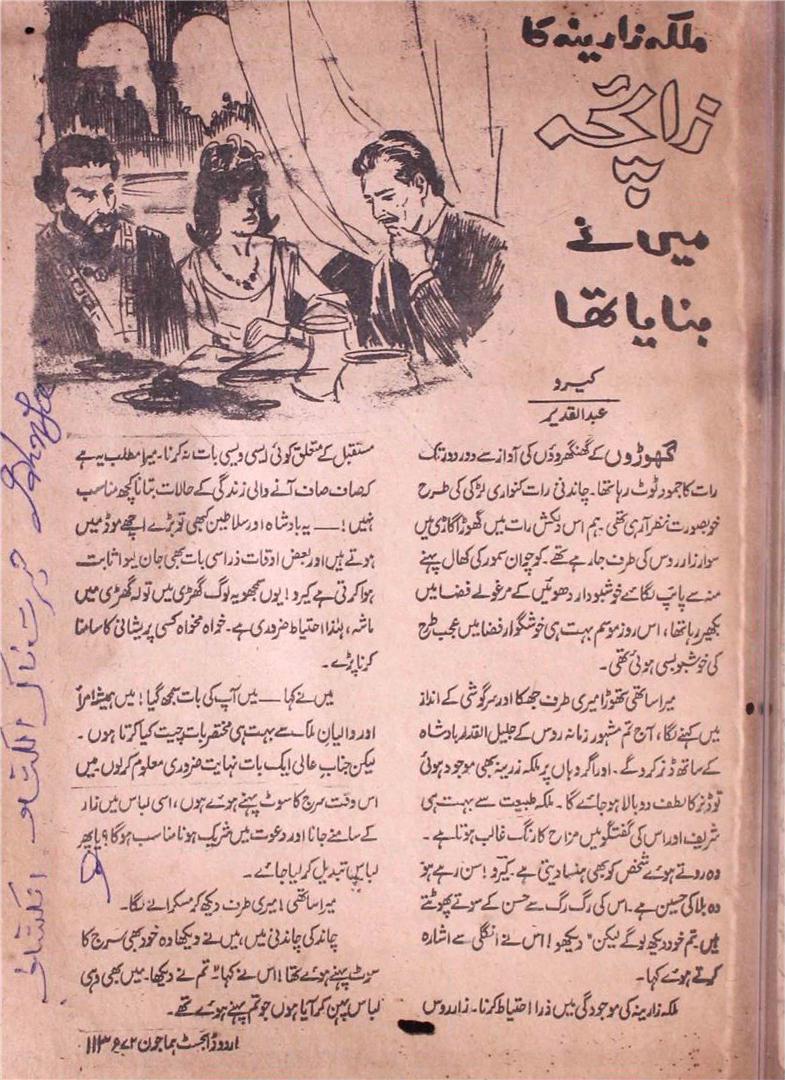 ملکہ زارینہ کا
زائچہ
میں نے
بنایا تھا
کیرو
عبدالقدیر
گھوڑوں کے گھنگھروؤں کی آواز سے دور دور تک
رات کا جمود ٹوٹ رہا تھا۔ چاندنی رات کنواری لڑکی کی طرح
خوبصورت نظر آرہی تھی۔ ہم اس دلکش رات میں گھوڑا گاڑی میں
سوار زار روس کی طرف جارہے تھے۔ کوچوان سمور کی کھال پہنے
منہ سے پائپ لگائے خوشبودار دھوئیں کے مرغولے فضا میں
بکھیر رہا تھا، اس روز موسم بہت ہی خوشگوار فضا میں عجب طرح
کی خوشبو بسی ہوئی تھی۔
میرا ساتھی تھوڑا میری طرف جھکا اور سرگوشی کے انداز
میں کہنے لگا، آج تم مشہور زمانہ روس کے جلیل القدر بادشاہ
کے ساتھ ڈنر کروگے۔ اور اگر وہاں پر ملکہ زرینہ بھی موجود ہوئی
تو ڈنر کا لطف دوبالا ہوجائے گا۔ ملکہ طبیعت سے بہت ہی
شریف اور اس کی گفتگو میں مزاح کا رنگ غالب ہوتا ہے۔
وہ روتے ہوئے شخص کو بھی ہنسا دیتی ہے۔ کیرو! سن رہے ہو
وہ بلا کی حسین ہے۔ اس کی رگ رگ سے حسن کے سوتے پھوٹتے
ہیں۔ تم خود دیکھ لوگے لیکن" دیکھو! اس نے انگلی سے اشارہ
کرتے ہوئے کہا۔
ملکہ زارینہ کی موجودگی میں ذرا احتیاط کرنا۔ زار روس
مستقبل کے متعلق کوئی ایسی ویسی بات نہ کرنا۔ میرا مطلب یہ ہے
کہ صاف صاف آنے والی زندگی کے حالات بتانا کچھ مناسب
نہیں! — یہ بادشاہ اور سلاطین کبھی تو بڑے اچھے موڈ میں
ہوتے ہیں اور بعض اوقات ذرا سی بات بھی جان لیوا ثابت
ہوا کرتی ہے کیرو! یوں سمجھو یہ لوگ گھڑی میں تولہ گھڑی میں
ماشہ، لہٰذا احتیاط ضروری ہے۔ خواہ مخواہ کسی پریشانی کا سامنا
کرنا پڑے۔
میں نے کہا — میں آپ کی بات سمجھ گیا! میں ہمیشہ امرأ
اور والیان ملک سے بہت ہی مختصر بات چیت کیا کرتا ہوں۔
لیکن جناب عالی ایک بات نہایت ضروری معلوم کرلوں میں
اس وقت سرج کا سوٹ پہنے ہوئے ہوں، اسی لباس میں زار
کے سامنے جانا اور دعوت میں شریک ہونا مناسب ہوگا؟ یا پھر
لباس تبدیل کر لیا جائے۔
میرا ساتھی! میری طرف دیکھ کر مسکرانے لگا۔
چاند کی چاندنی میں، میں نے دیکھا وہ خود بھی سرج کا
سوٹ پہنے ہوئے تھا! اس نے کہا" تم نے دیکھا۔ میں بھی وہی
لباس پہن کر آیا ہوں جو تم پہنے ہوئے تھے۔
اردو ڈائجسٹ ہما جون ۷۲ء ۱۱۳
حیرت ناک انکشاف انکشاف